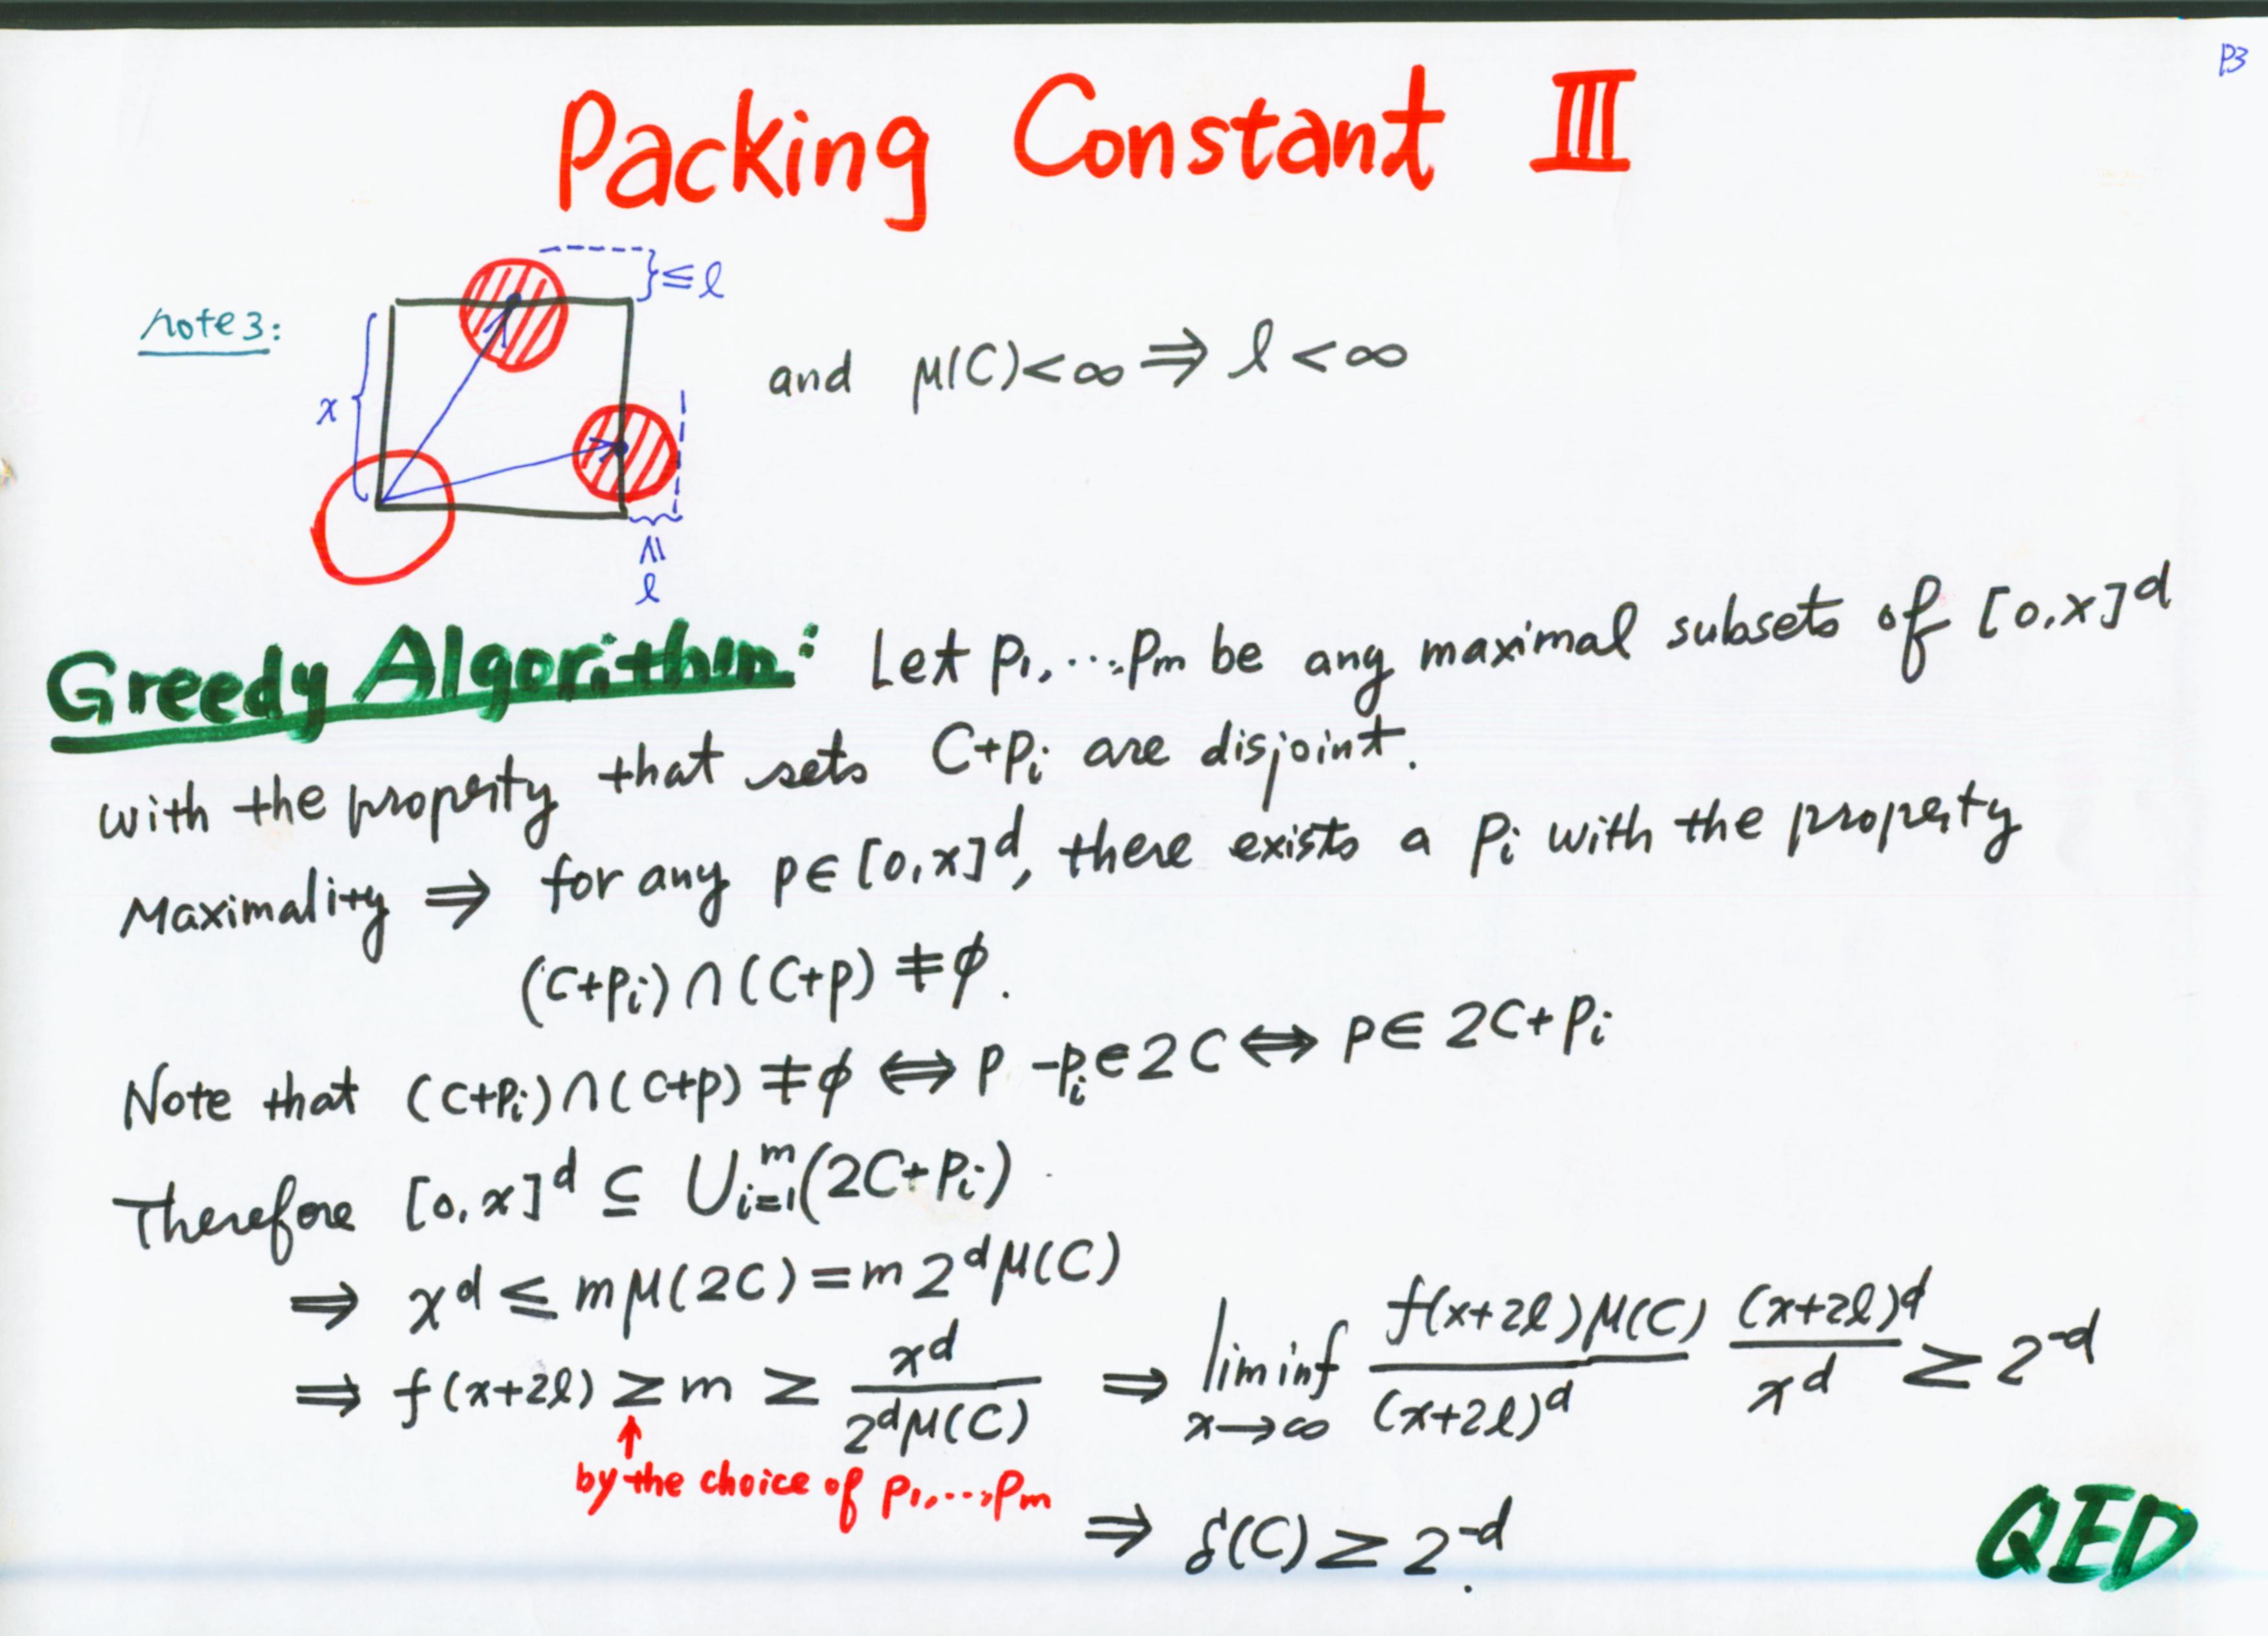 P3
Packing Constant III
note 3:
≤ l
x
and μ(C)<∞ ⇒ l < ∞
≤
l
Greedy Algorithm: Let p₁,...,pₘ be any maximal subsets of [0,x]^d
with the property that sets C+pᵢ are disjoint.
Maximality ⇒ for any p∈[0,x]^d, there exists a pᵢ with the property
(C+pᵢ)∩(C+p) ≠ ϕ.
Note that (C+pᵢ)∩(C+p) ≠ ϕ ⇔ p -pᵢ∈2C ⇔ p∈ 2C+pᵢ
Therefore [0,x]^d ⊆ ∪ᵢ₌₁^m(2C+pᵢ)
⇒ x^d ≤ mμ(2C)=m2^dμ(C)
⇒ f(x+2l) ≥ m ≥ x^d / 2^dμ(C) ⇒ lim inf x→∞ f(x+2l)μ(C) / (x+2l)^d (x+2l)^d / x^d ≥ 2^-d
↑
by the choice of p₁,...,pₘ
⇒ δ(C) ≥ 2^-d.
QED